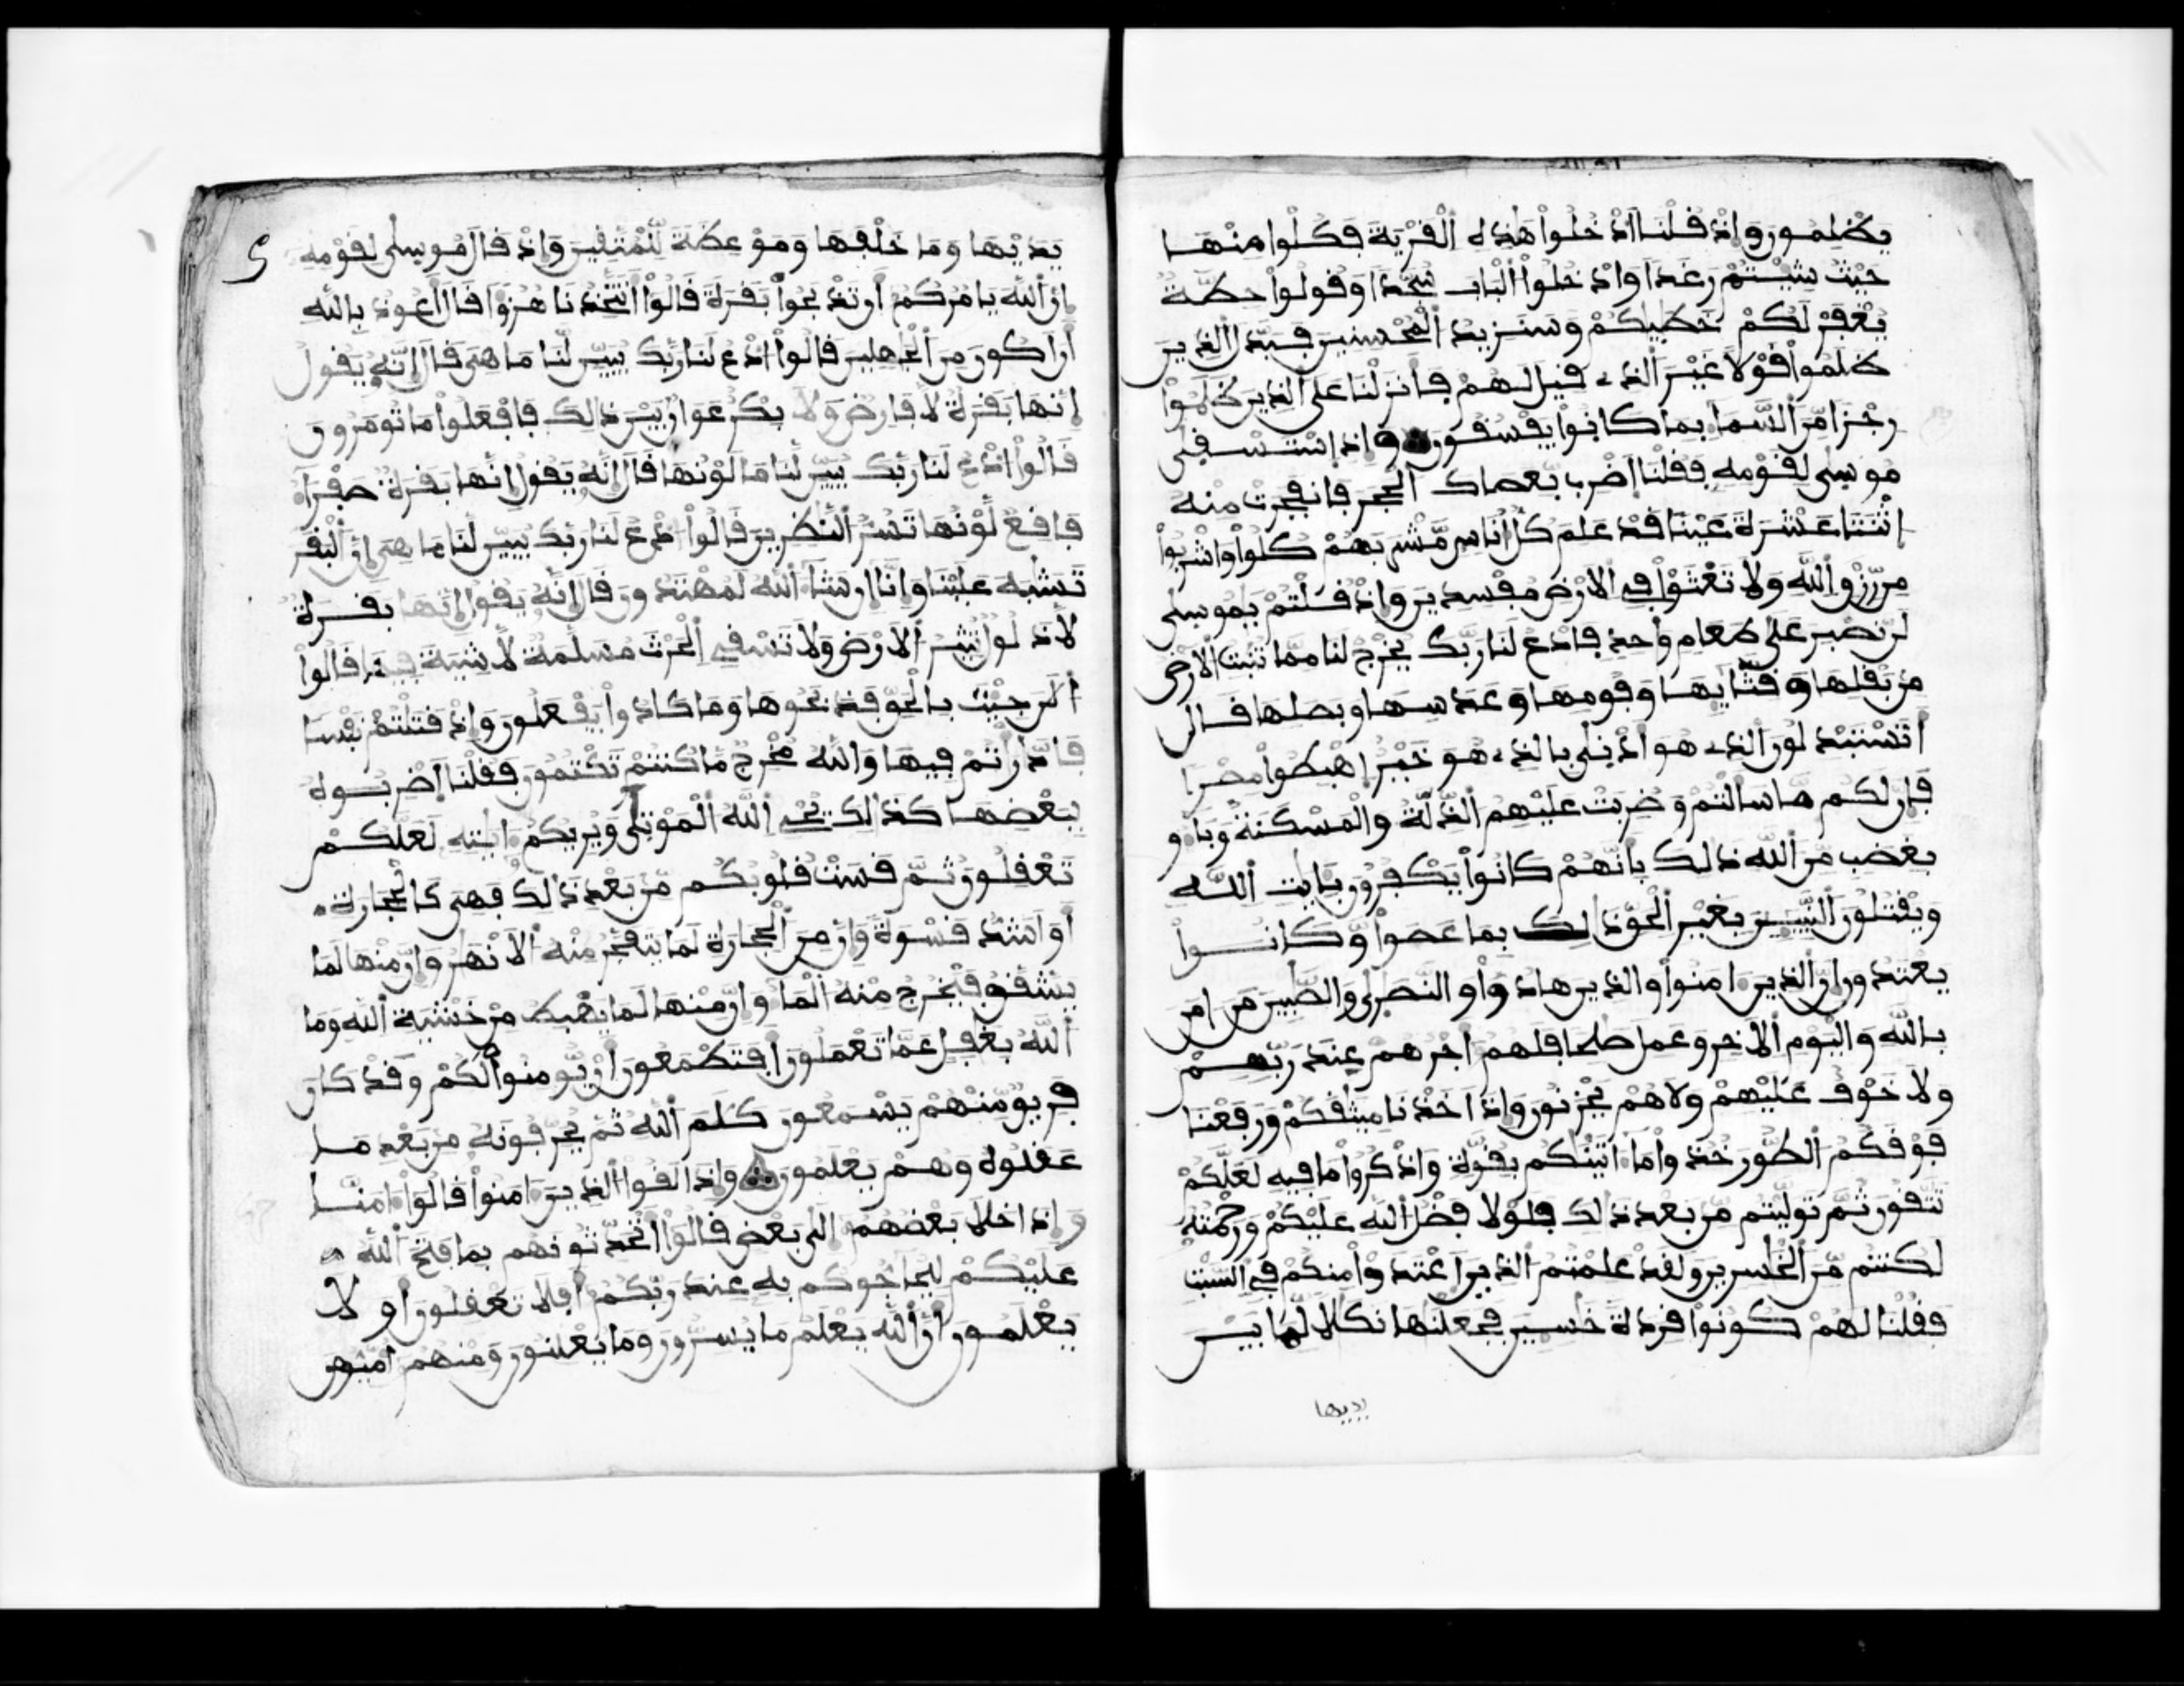 يظلمون وإذ قلنا ادخلوا هذه القرية فكلوا منها
حيث شئتم رغدا وادخلوا الباب سجدا وقولوا حطة
يغفر لكم خطيكم وسنزيد المحسنين فبدل الذين
ظلموا قولا غير الذے قيل لهم فانزلنا على الذين ظلموا
رجزا من السما بما كانوا يفسقون وإذ استسقى
موسى لقومه فقلنا اضرب بعصاك الحجر فانفجرت منه
اثنتا عشرة عينا قد علم كل اناس مشربهم كلوا واشربوا
من رزق الله ولا تعثوا في الارض مفسدين وإذ قلتم يموسى
لن نصبر على طعام وحد فادع لنا ربك يخرج لنا مما تنبت الارض
من بقلها وقثايها وفومها وعدسها وبصلها قال
أتستبدلون الذے هو أدنى بالذے هو خير اهبطوا مصرا
فإن لكم ما سالتم وضربت عليهم الذلة والمسكنة وباو
بغضب من الله ذلك بأنهم كانوا يكفرون بايت الله
ويقتلون النبيين بغير الحق ذلك بما عصوا وكانوا
يعتدون إن الذين امنوا والذين هادوا والنصرى والصبين من امن
بالله واليوم الاخر وعمل صلحا فلهم أجرهم عند ربهم
ولا خوف عليهم ولا هم يحزنون وإذ أخذنا ميثقكم ورفعنا
فوقكم الطور خذوا ما اتينكم بقوة واذكروا ما فيه لعلكم
تتقون ثم توليتم من بعد ذلك فلولا فضل الله عليكم ورحمته
لكنتم من الخسرين ولقد علمتم الذين اعتدوا منكم في السبت
فقلنا لهم كونوا قردة خسين فجعلنها نكلا لما بين
يديها
يديها وما خلفها وموعظة للمتقين وإذ قال موسى لقومه
إن الله يامركم أن تذبحوا بقرة قالوا أتتخذنا هزؤا قال أعوذ بالله
أن اكون من الجهلين قالوا ادع لنا ربك يبين لنا ما هي قال إنه يقول
إنها بقرة لا فارض ولا بكر عوان بين ذلك فافعلوا ما تومرون
قالوا ادع لنا ربك يبين لنا ما لونها قال إنه يقول إنها بقرة صفرا
فاقع لونها تسر النظرين قالوا ادع لنا ربك يبين لنا ما هي إن البقر
تشبه علينا وإنا إن شا الله لمهتدون قال إنه يقول إنها بقرة
لا ذلول تثير الارض ولا تسقي الحرث مسلمة لا شية فيها قالوا
الن جيت بالحق فذبحوها وما كادوا يفعلون وإذ قتلتم نفسا
فادارتم فيها والله مخرج ما كنتم تكتمون فقلنا اضربوه
ببعضها كذلك يحي الله الموتى ويريكم ايته لعلكم
تعقلون ثم قست قلوبكم من بعد ذلك فهي كالحجارة
أو اشد قسوة وإن من الحجارة لما يتفجر منه الانهر وإن منها لما
يشقق فيخرج منه الما وإن منها لما يهبط من خشية الله وما
الله بغفل عما تعملون أفتطمعون أن يومنوا لكم وقد كان
فريق منهم يسمعون كلم الله ثم يحرفونه من بعد ما
عقلوه وهم يعلمون وإذا لقوا الذين امنوا قالوا امنا
وإذا خلا بعضهم إلى بعض قالوا اتحدثونهم بما فتح الله
عليكم ليحاجوكم به عند ربكم أفلا تعقلون أو لا
يعلمون أن الله يعلم ما يسرون وما يعلنون ومنهم أميون